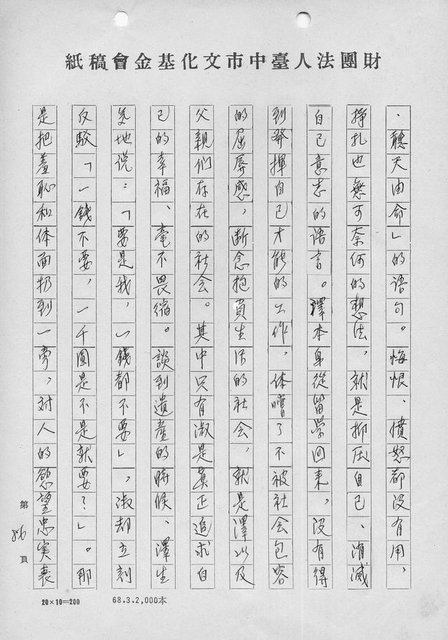 財團法人臺中市文化基金會稿紙
．聽天由命」的語句。悔恨、憤怒都沒有用，
掙扎也無可奈何的想法，就是抑压自己、消滅
自己意志的語言。澤本身從留学回来，沒有得
到發揮自己才能的工作，体嚐了不被社会包容
的屈辱感，断念抱負生活的社会，就是澤以及
父親們存在的社会。其中只有淑是真正追求自
己的幸福、毫不畏縮。談到遺產的時候，澤生
氣地說：「要是我，一錢都不要」，淑却立刻
反駁「一錢不要，一千圓是不是就要？」。那
是把羞恥和体面扔到一旁，对人的慾望忠実表
第86頁
20×10=200
68.3.2,000本